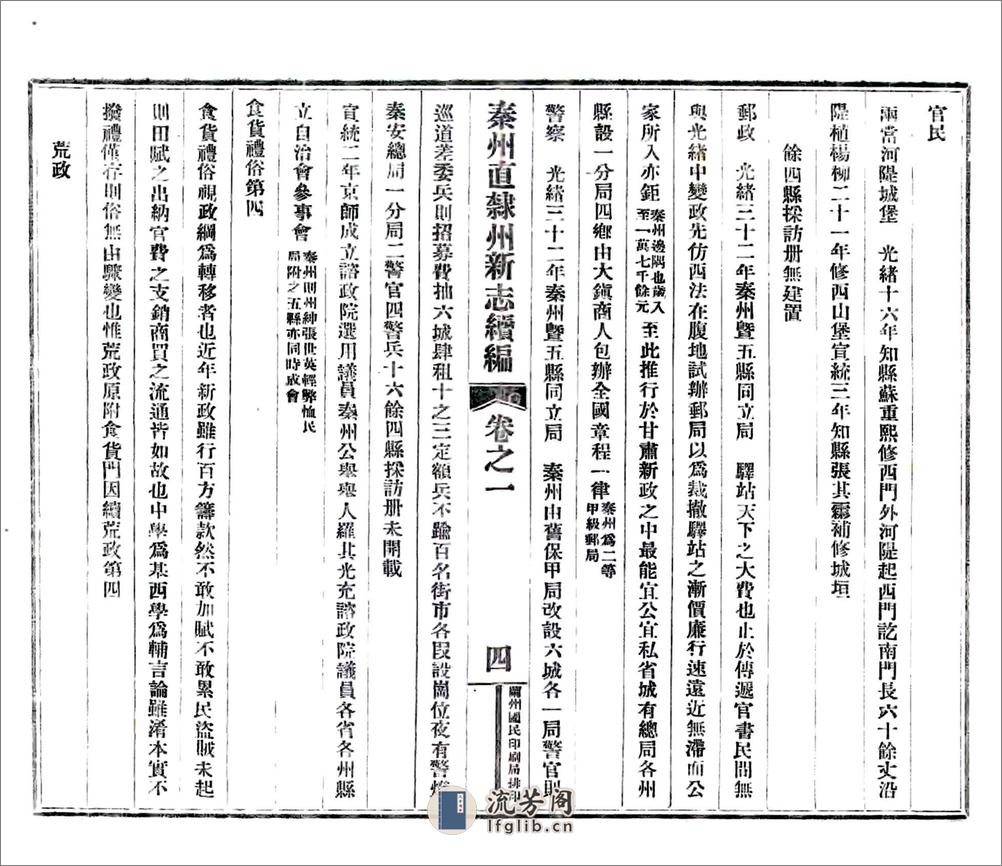 官民
兩當河隄城堡　光緒十六年知縣蘇重熙修西門外河隄起西門訖南門長六十餘丈沿
隄植楊柳二十一年修西山堡宣統三年知縣張其霖補修城垣
餘四縣採訪册無建置
郵政　光緒三十二年秦州暨五縣同立局　驛站天下之大費也止於傳遞官書民間無
與光緒中變政先仿西法在腹地試辦郵局以爲裁撤驛站之漸價廉行速遠近無滯而公
家所入亦鉅秦州邊隅也歲入至一萬七千餘元至此推行於甘肅新政之中最能宜公宜私省城有總局各州
縣設一分局四鄉由大鎮商人包辦全國章程一律秦州爲二等甲級郵局
警察　光緒三十二年秦州暨五縣同立局　秦州由舊保甲局改設六城各一局警官則
秦州直隸州新志續編　卷之一　四　蘭州國民印刷局排印
巡道差委兵則招募費抽六城肆租十之三定額兵不踰百名街市各段設崗位夜有警燈
秦安總局一分局二警官四警兵十六餘四縣採訪册未開載
宣統二年京師成立諮政院選用議員秦州公舉舉人羅其光充諮政院議員各省各州縣
立自治會參事會秦州則州紳張世英輕弊恤民局附之五縣亦同時成會
食貨禮俗第四
食貨禮俗視政綱爲轉移者也近年新政雖行百方籌款然不敢加賦不敢累民盜賊未起
則田賦之出納官費之支銷商買之流通皆如故也中學爲基西學爲輔言論雖淆本實不
撥禮僅存則俗無由驟變也惟荒政原附食貨門因續荒政第四
荒政
流芳阁
lfglib.cn